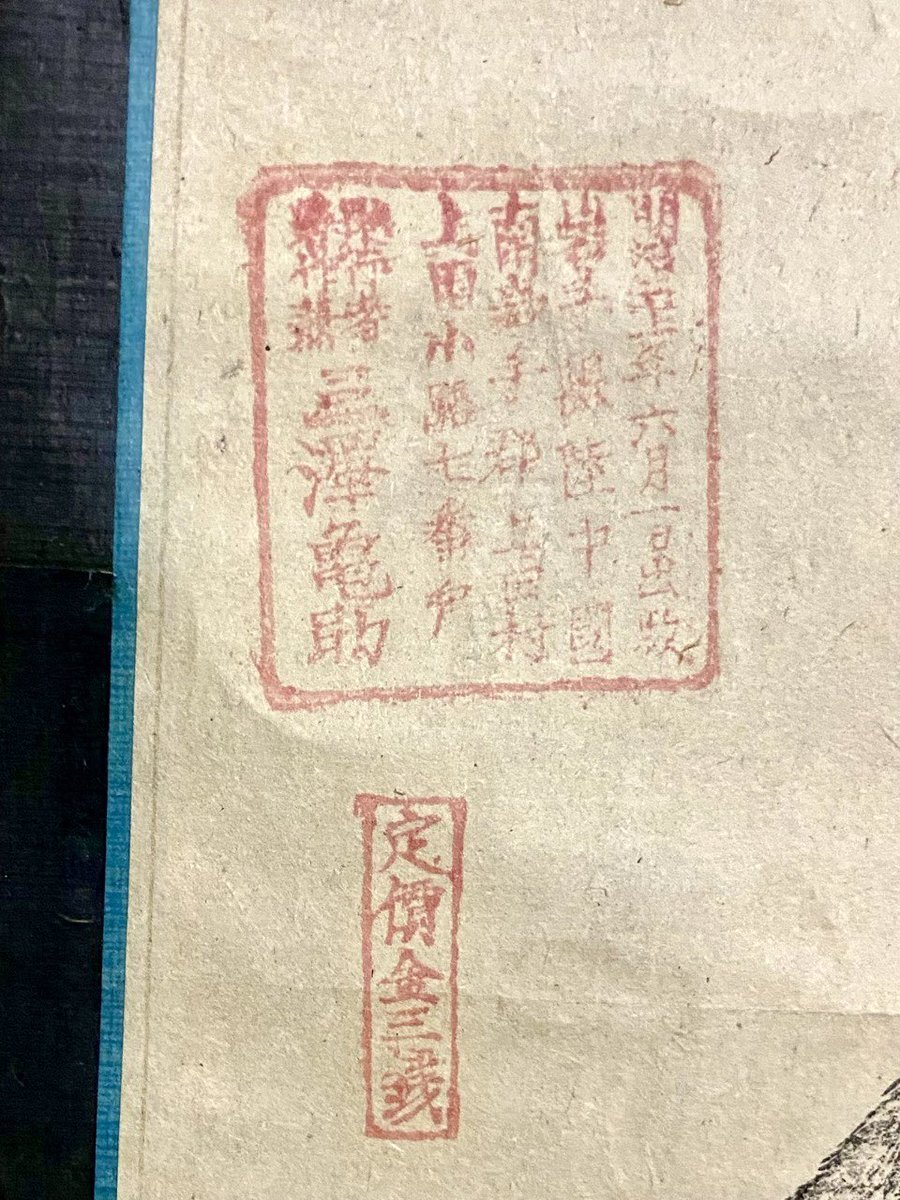 明治十五年六月一日出版
岩手縣陸中國
南岩手郡上田村
上田小路七番戸
編輯者
出版人
三澤亀助
定價金三銭